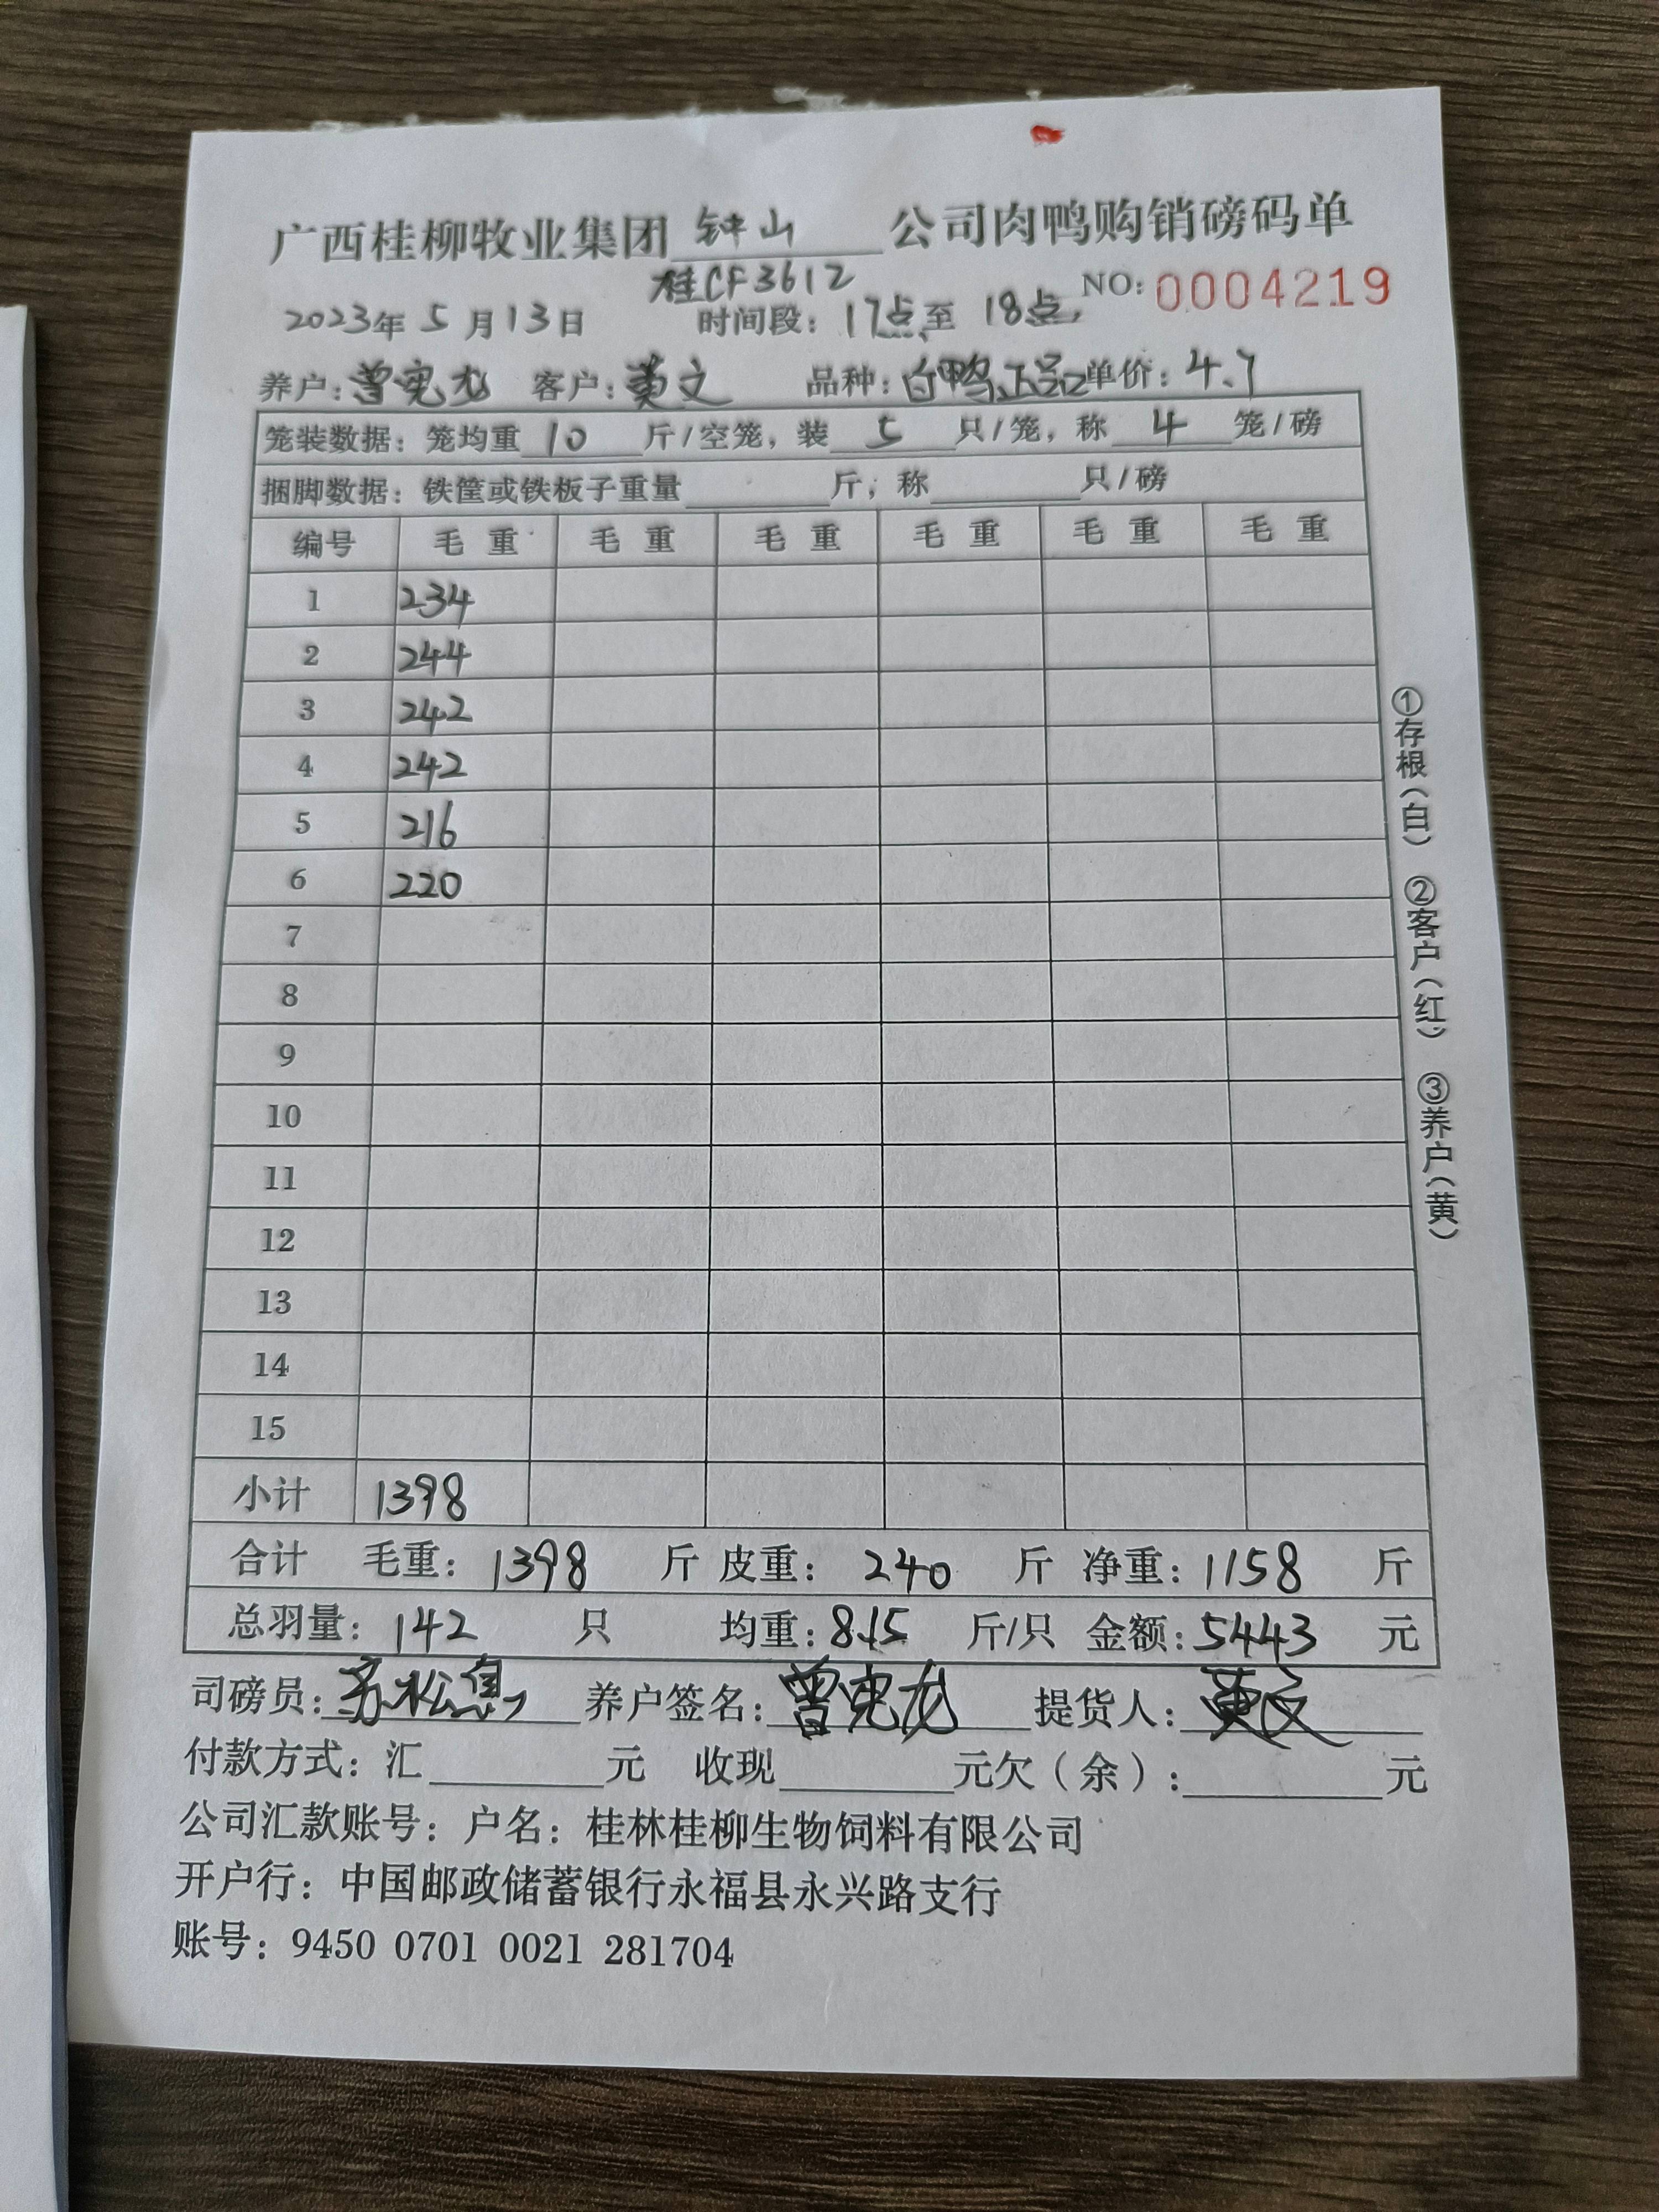 广西桂柳牧业集团 钟山 公司肉鸭购销磅码单
桂CF3612 NO: 0004219
2023年 5 月 13日 时间段: 17点至 18点
养户: 曾宪龙 客户: 黄文 品种: 白鸭正品 单价: 4.7
笼装数据: 笼均重 10 斤/空笼, 装 5 只/笼, 称 4 笼/磅
捆脚数据: 铁筐或铁板子重量 斤, 称 只/磅
编号 毛重 毛重 毛重 毛重 毛重 毛重
1 234
2 244
3 242
4 242
5 216
6 220
7
8
9
10
11
12
13
14
15
小计 1398
合计 毛重: 1398 斤 皮重: 240 斤 净重: 1158 斤
总羽量: 142 只 均重: 8.15 斤/只 金额: 5443 元
司磅员: 养户签名: 曾宪龙 提货人: 黄文
付款方式: 汇 元 收现 元欠(余): 元
公司汇款账号: 户名: 桂林桂柳生物饲料有限公司
开户行: 中国邮政储蓄银行永福县永兴路支行
账号: 9450 0701 0021 281704
①存根(白) ②客户(红) ③养户(黄)